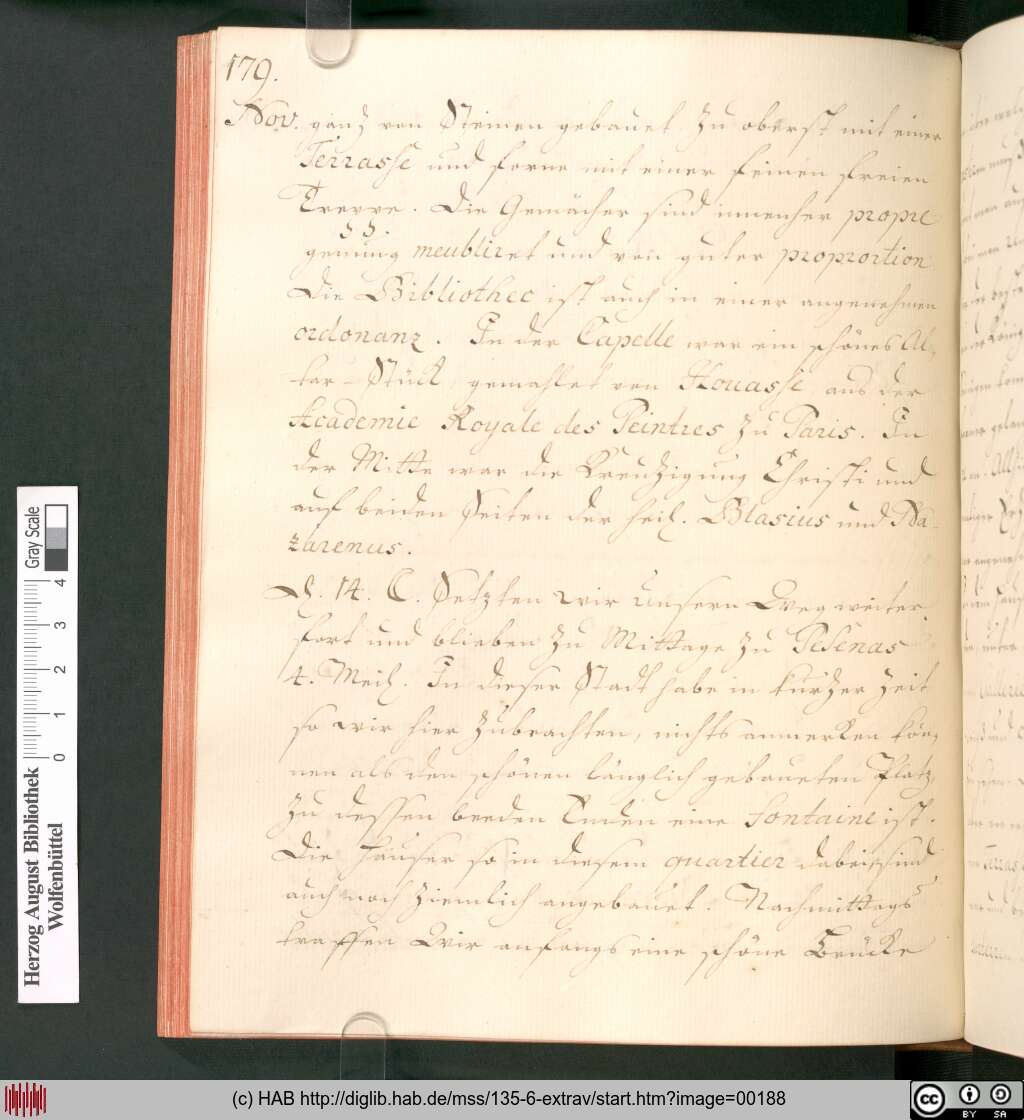 179.
Nov. ganz von Steinen gebauet zu oberst mit einer
Terrasse und forne mit einer feinen freien
Treppe. Die Gemächer sind innenher propre
genung meubliret und von guter proportion
Die Bibliothec ist auch in einer angenehmen
ordonanz. In der Capelle war ein schönes Al-
tar-Stück, gemahlet von Houasse aus der
Academie Royale des Peintres zu Paris. In
der Mitte war die Kreuzigung Christi und
auf beiden Seiten der heil. Blasius und Na-
zarenus.
D. 14. C. Setzten wir unsern Weg weiter
fort und blieben zu Mittage zu Pesenas
4. Meil. In dieser Stadt habe in kurzer Zeit
so wir hier zubrachten, nichts anmerken kön-
nen als den schönen länglich gebaueten Platz,
zu dessen beeden Enden eine fontaine ist.
Die Häuser so in diesem quartier dabei sind
auch noch ziemlich angebauet. Nachmittags
traffen wir anfangs eine schöne Brücke
Gray Scale
0 1 2 3 4
Herzog August Bibliothek
Wolfenbüttel
(c) HAB http://diglib.hab.de/mss/135-6-extrav/start.htm?image=00188
cc BY SA